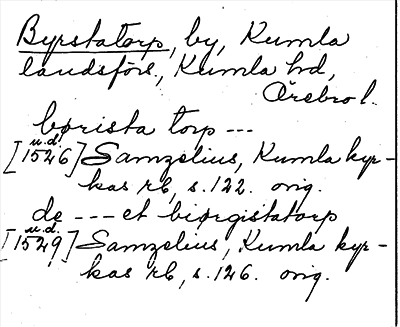 Byrstatorp, by, Kumla
landsförs., Kumla hd,
Örebro l.
børista torp ---
u.d.
[1526] Samzelius, Kumla kyr-
kas rb, s. 122. orig.
de --- et biørgistatorp
u.d.
[1529] Samzelius, Kumla kyr-
kas rb, s. 126. orig.